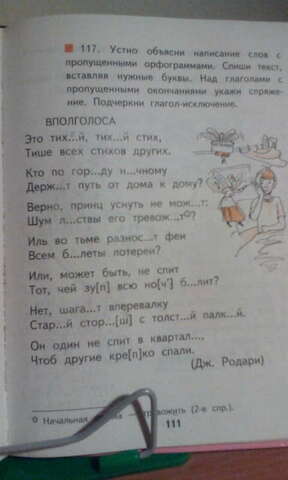 117. Устно объясни написание слов с
пропущенными орфограммами. Спиши текст,
вставляя нужные буквы. Над глаголами с
пропущенными окончаниями укажи спряже-
ние. Подчеркни глагол-исключение.
ВПОЛГОЛОСА
Это тих...й, тих...й стих,
Тише всех стихов других.
Кто по гор...ду н...чному
Держ...т путь от дома к дому?
Верно, принц уснуть не мож...т:
Шум л...ствы его тревож...т⁰?
Иль во тьме разнос...т феи
Всем б...леты лотереи?
Или, может быть, не спит
Тот, чей зу[п] всю но[ч'] б...лит?
Нет, шага...т вперевалку
Стар...й стор...[ш] с толст...й палк...й.
Он один не спит в квартал...,
Чтоб другие кре[п]ко спали.
(Дж. Родари)
⁰ Начальная — тревожить (2-е спр.).
111